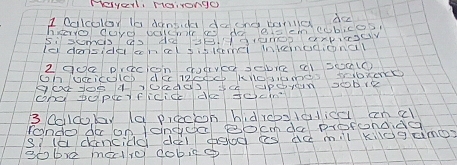 Mayerli Mairongo
1 Calcular la densidad de una barilla de
hierro cuyo volumen es de cm cubicos,
si su masa es de gramos expresar
la densidad en el sistema internacional
2 que presion ejerce sobre el suelo
un veiculo de 1200 kilogramos sabiendo
que sus 4 ruedas se apoyan sobre
una superficie de
3 Calcular la precion hidrostatica en el
fondo de un tanque de profundida
si la dencidad del agua es de mil kilogramos
sobre metro cubico